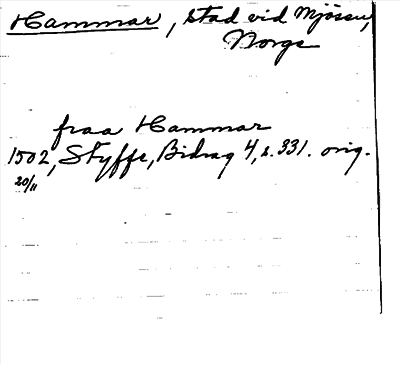 Hammar, stad vid Mjösen,
Norge
fraa Hammar
1502, Styffe, Bidrag 4, s. 331. orig.
20/11